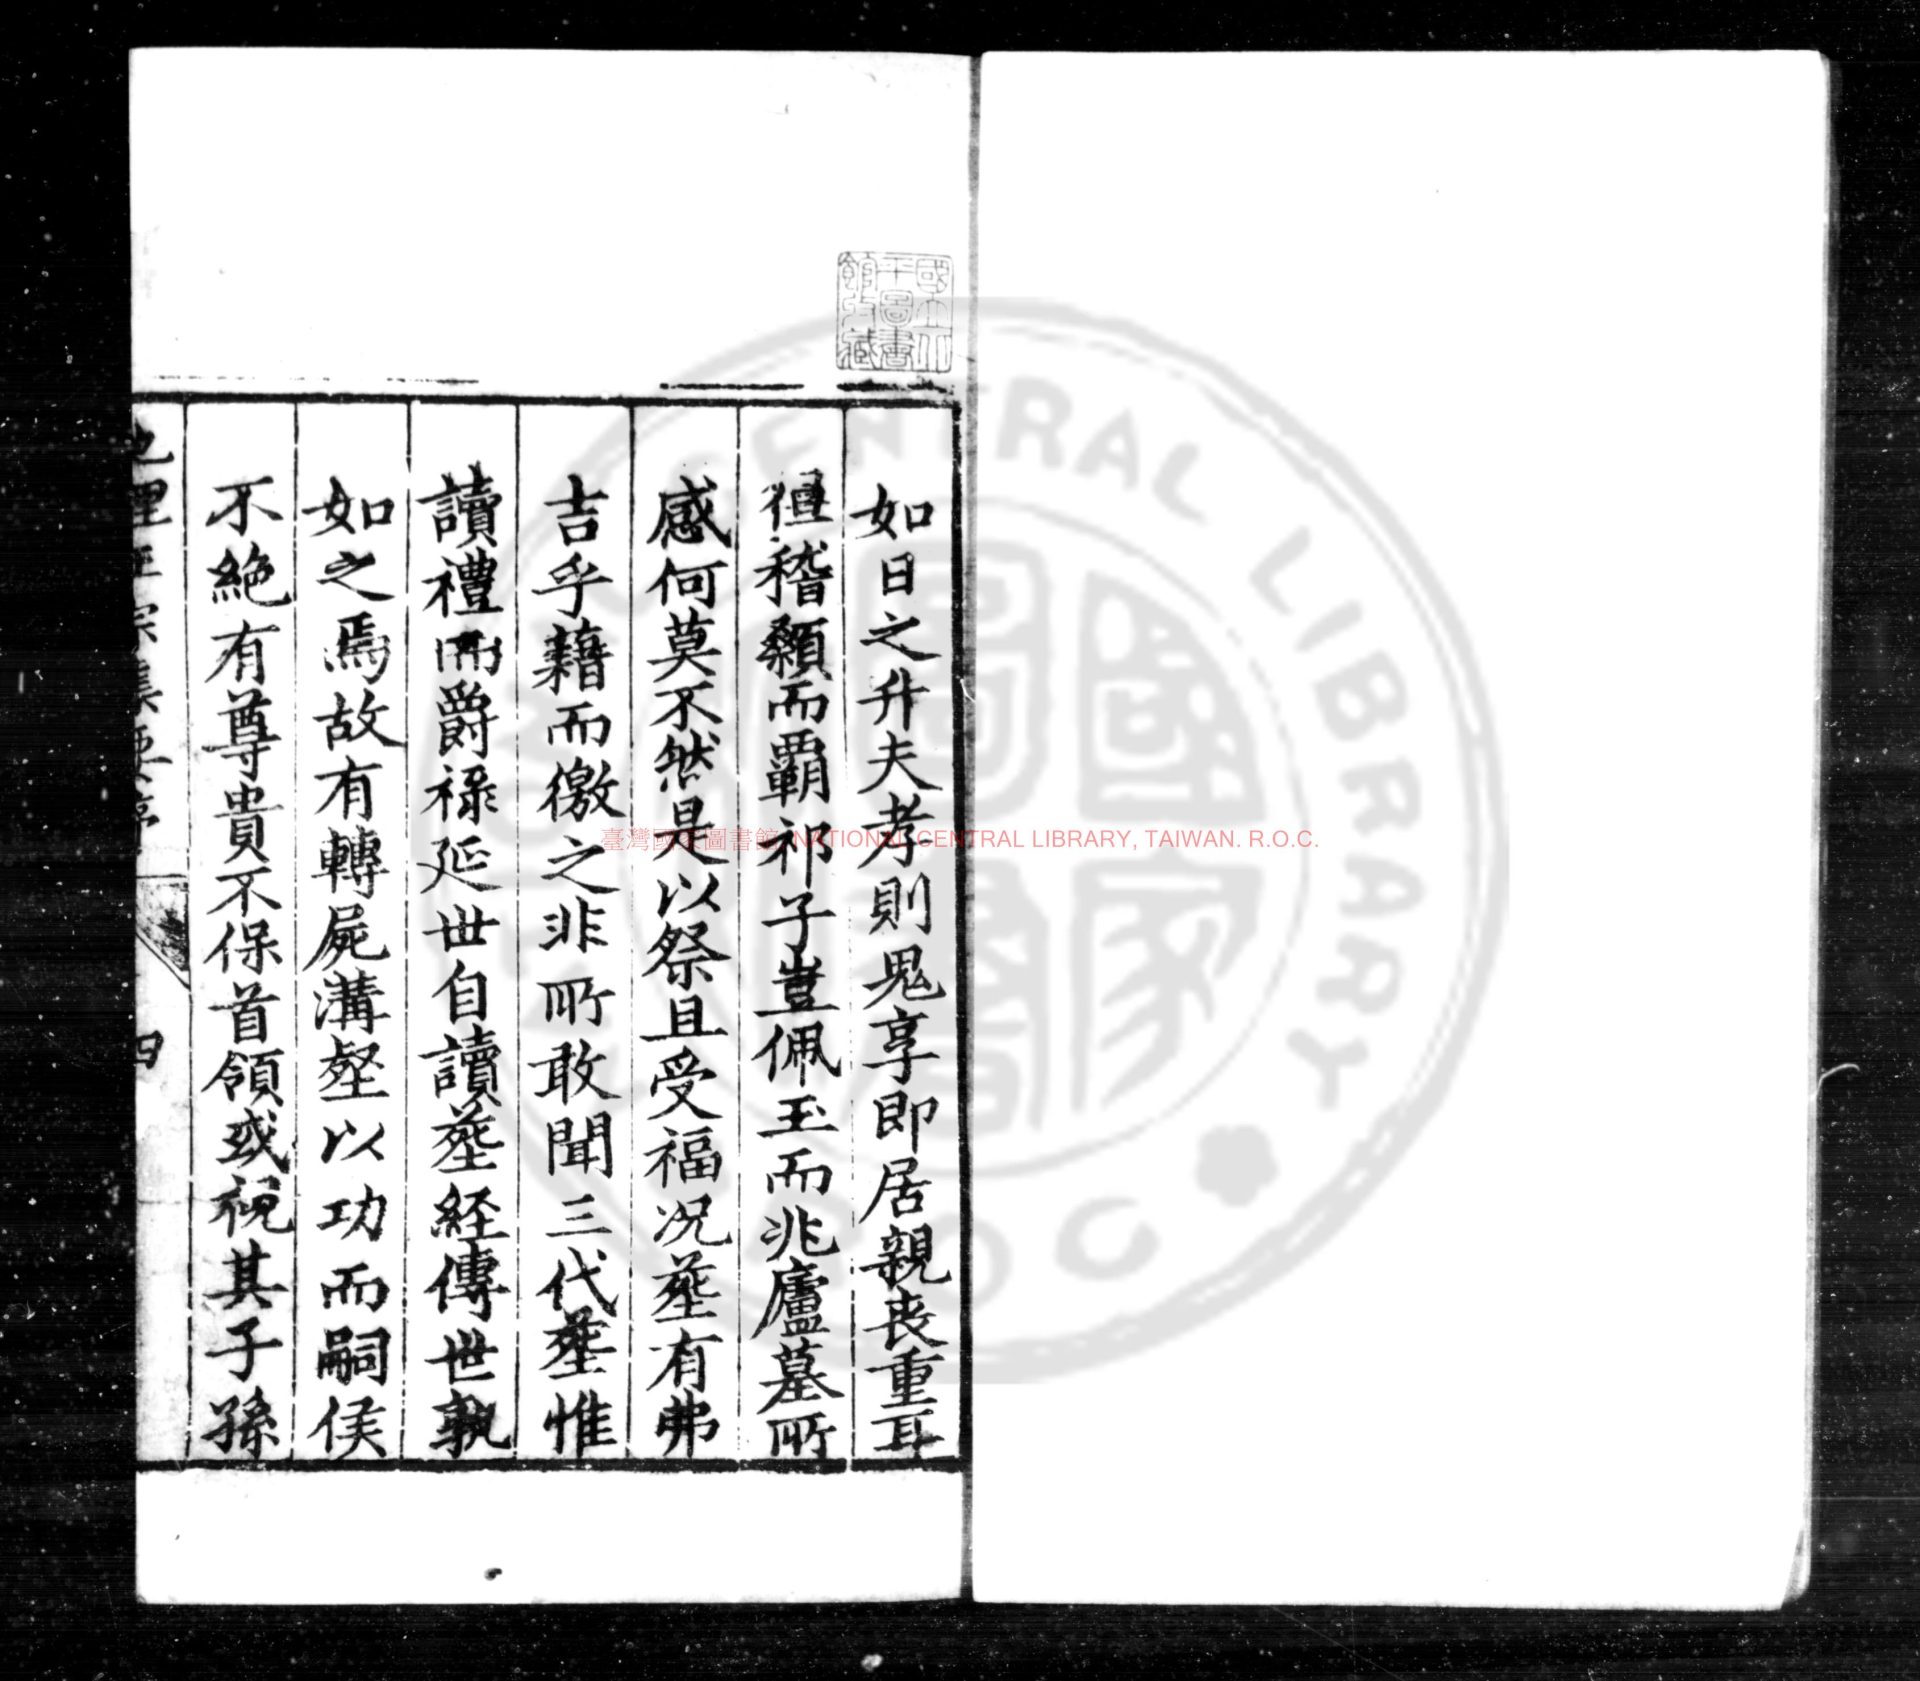 國立北
平圖書
館收藏
如日之升夫孝則鬼享即居親丧重耳
稽顙而覇祁子豈佩玉而兆廬墓所
感何莫不然是以祭且受福况塟有弗
吉乎藉而徼之非所敢聞三代塟惟
讀禮而爵禄延世自讀塟経傳世孰
如之焉故有轉屍溝壑以功而嗣侯
不絶有尊貴不保首領或祝其子孫
地理正宗集要序
四
臺灣國家圖書館, NATIONAL CENTRAL LIBRARY, TAIWAN. R.O.C.
NATIONAL CENTRAL LIBRARY
R.O.C.
國家圖書館